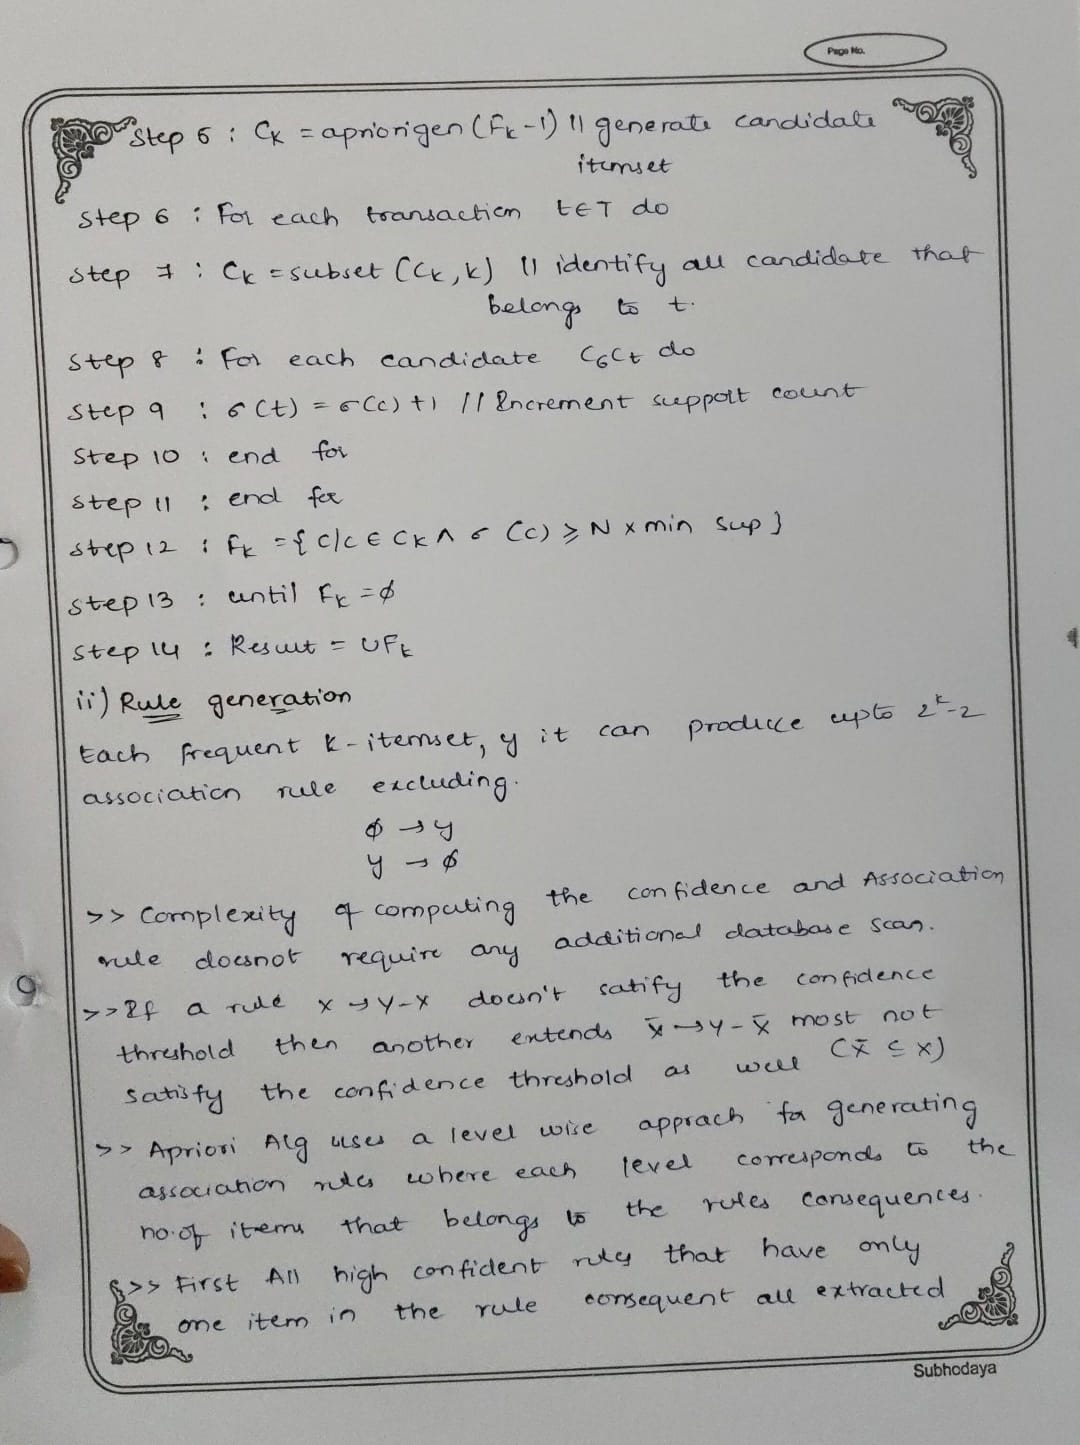 Page No.
Step 5 : Ck = apriorigen (Fk-1) // generate candidate
itemset
Step 6 : For each transaction t∈T do
Step 7 : Ck = subset (Ck, k) // identify all candidate that
belongs to t.
Step 8 : For each candidate C6Ct do
Step 9 : σ(t) = σ(c) +1 // Increment support count
Step 10 : end for
Step 11 : end for
Step 12 : Fk = { c/c ∈ Ck ∧ σ (c) ≥ N x min sup }
Step 13 : until Fk = ϕ
Step 14 : Result = ∪Fk
ii) Rule generation
Each frequent k-itemset, y it can produce upto 2^k-2
association rule excluding.
ϕ → y
y → ϕ
>> Complexity of computing the confidence and Association
rule doesnot require any additional database scan.
>> If a rule x → y-x doesn't satify the confidence
threshold then another extends x̄ → y-x̄ most not
satisfy the confidence threshold as well (x̄ ⊆ x)
>> Apriori Alg uses a level wise apprach for generating
association rules where each level corresponds to the
no.of items that belongs to the rules consequences.
>> First All high confident rules that have only
one item in the rule consequent all extracted
Subhodaya